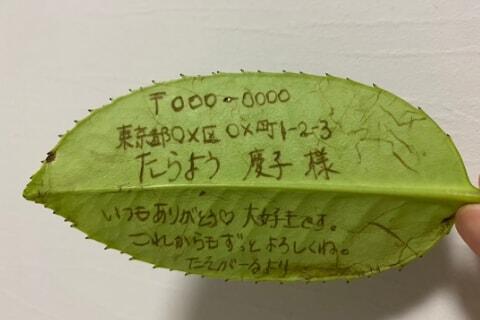 〒000-0000
東京都〇×区〇×町1-2-3
たらよう 慶子 様
いつもありがとう♡ 大好きです。
これからもずっとよろしくね。
たそがーるより